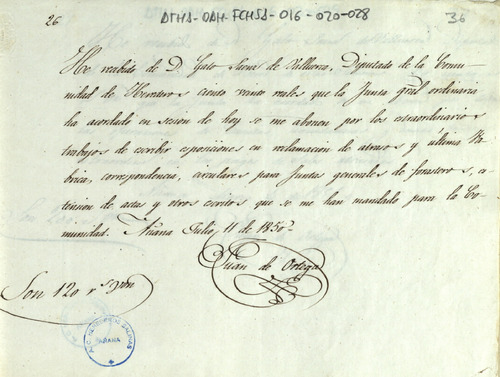 26
ATHA-DAH-FCHSA-016-020-028
36
He recibido de D. Gato Saenz de Diputado de la Comu-
nidad de Herederos ciento veinte reales que la Junta gral ordinaria
ha acordado en sesion de hoy se me abonen por los estraordinarios
trabajos de escribir esposiciones en reclamacion de atrasos y última
correspondencia, circulares para Juntas generales de forasteros, es-
tension de actas y otros escritos que se me han mandado para la Co-
munidad. Añana Julio, 11 de 1850.
Juan de Ortega
Son 120 rs von
SALINAS
AÑANA